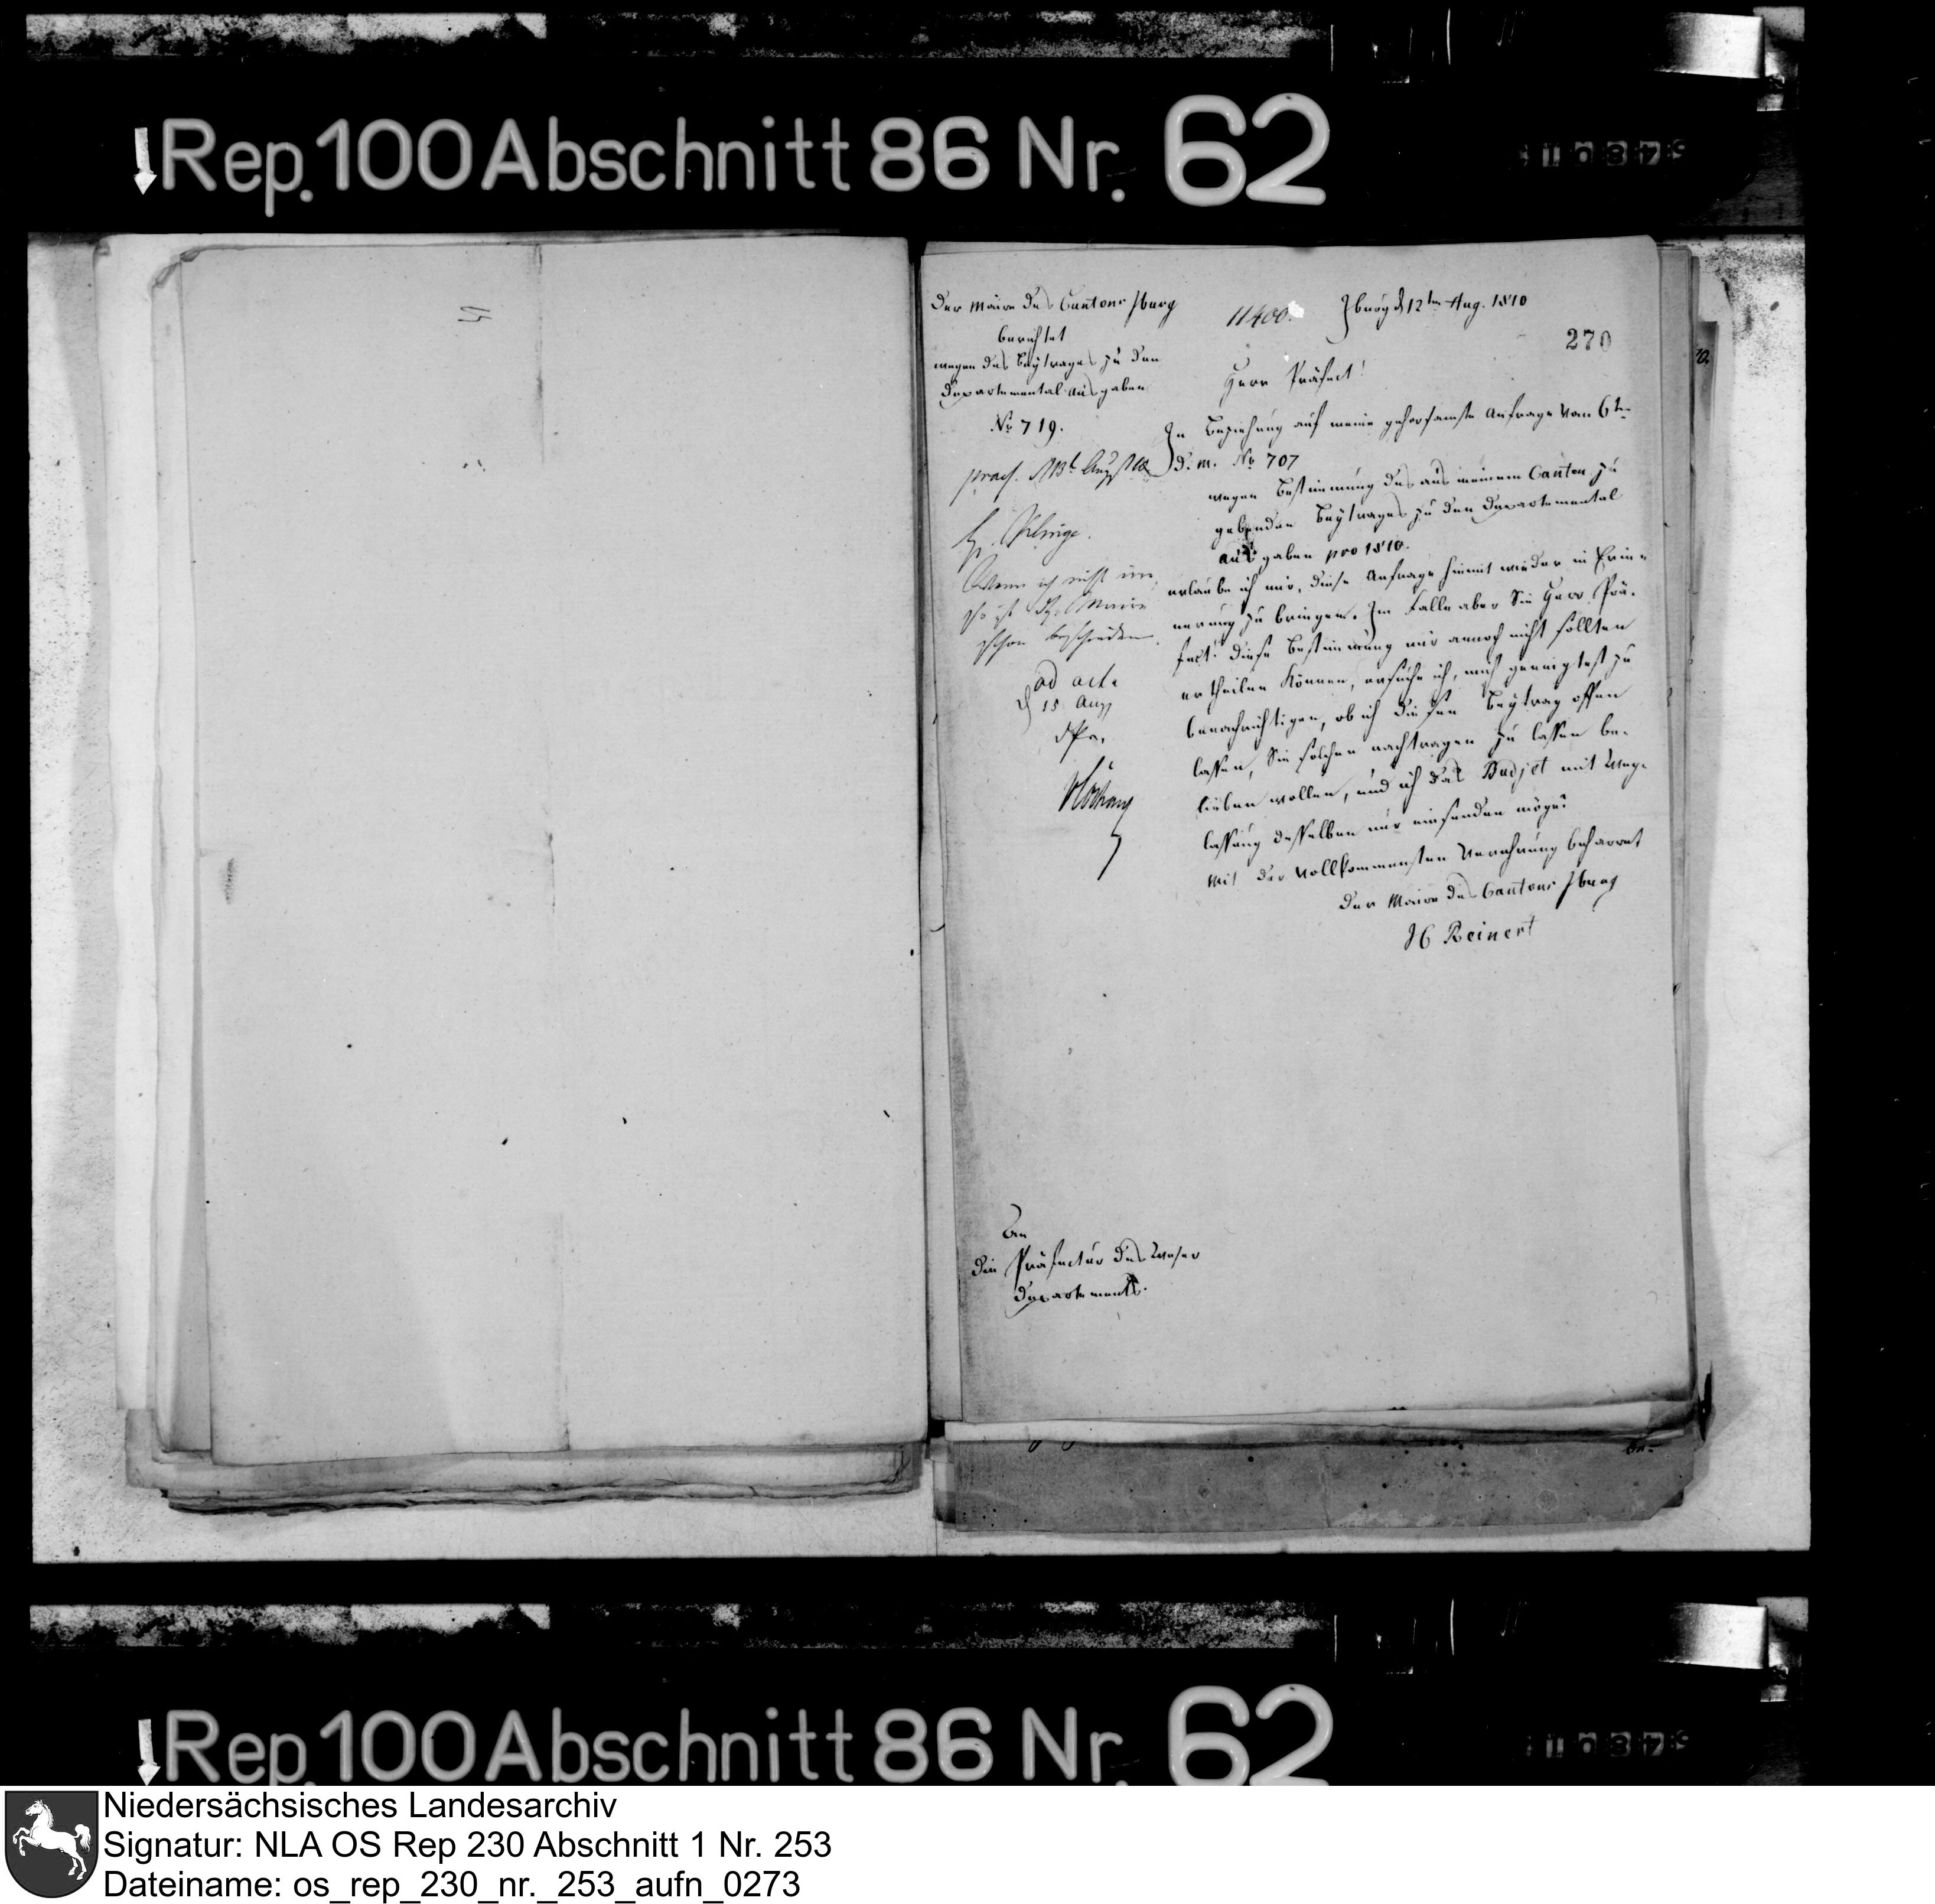 Rep. 100 Abschnitt 86 Nr. 62
Der Maire des Cantons Iburg
berichtet
wegen des Beytrages zu den
Departemental ausgaben
No 719.
praes. d 13t Aug 1810
H. Klinge.
Wenn ich nicht irre,
so ist H. Maire
schon beschieden.
ad acta
d 15 Aug
11400.
Iburg d 12ten Aug. 1810
270
Herr Präfect!
In Beziehung auf meine gehorsamste Anfrage vom 6ten
d. m. No 707
wegen Bestimmung des aus meinem Canton zu
gebenden Beytrages zu den Departemental
ausgaben pro 1810.
erlaube ich mir, diese Anfrage hiemit wieder in Erin-
nerung zu bringen. Im Falle aber Sie Herr Prä-
fect! diese Bestimmung mir annoch nicht sollten
ertheilen können, ersuche ich, mich geneigtest zu
benachrichtigen, ob ich diesen Beytrag offen
lassen, Sie solchen nachtragen zu lassen be-
lieben wollen, und ich das Budjet mit Weg-
lassung desselben nur einsenden möge?
Mit der vollkommensten Verehrung beharret
Der Maire des Cantons Iburg
Reinert
An
die Präfectur des Weser
Departements.
Rep. 100 Abschnitt 86 Nr. 62
Niedersächsisches Landesarchiv
Signatur: NLA OS Rep 230 Abschnitt 1 Nr. 253
Dateiname: os_rep_230_nr._253_aufn_0273